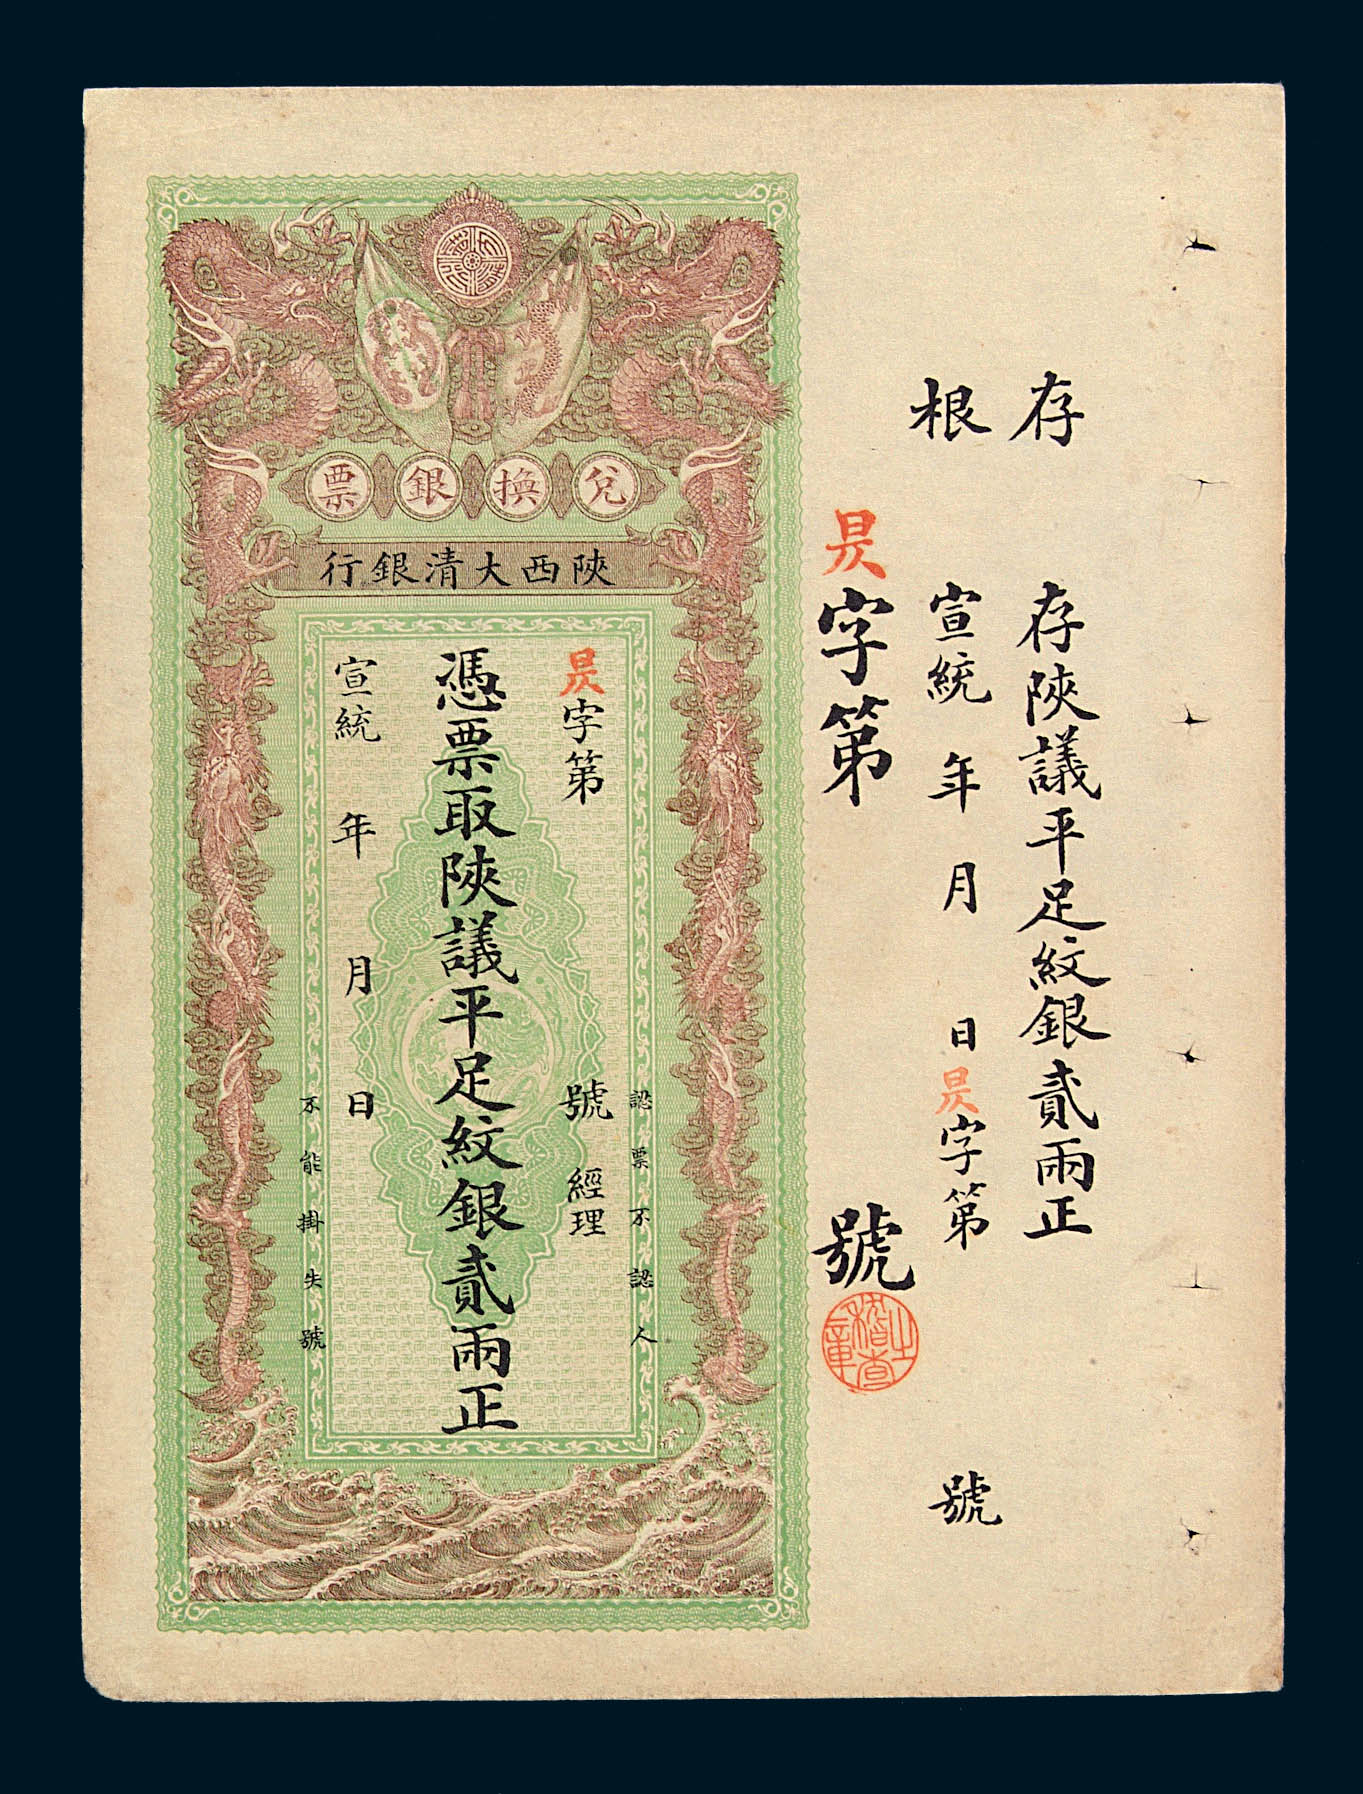 存根
存陝議平足紋銀貳兩正
宣統 年 月 日 昃字第 號
昃字第 號
稽查之章
兌換銀票
陝西大清銀行
認票不認人
昃字第 號 經理
憑票取陝議平足紋銀貳兩正
宣統 年 月 日
不能掛失號